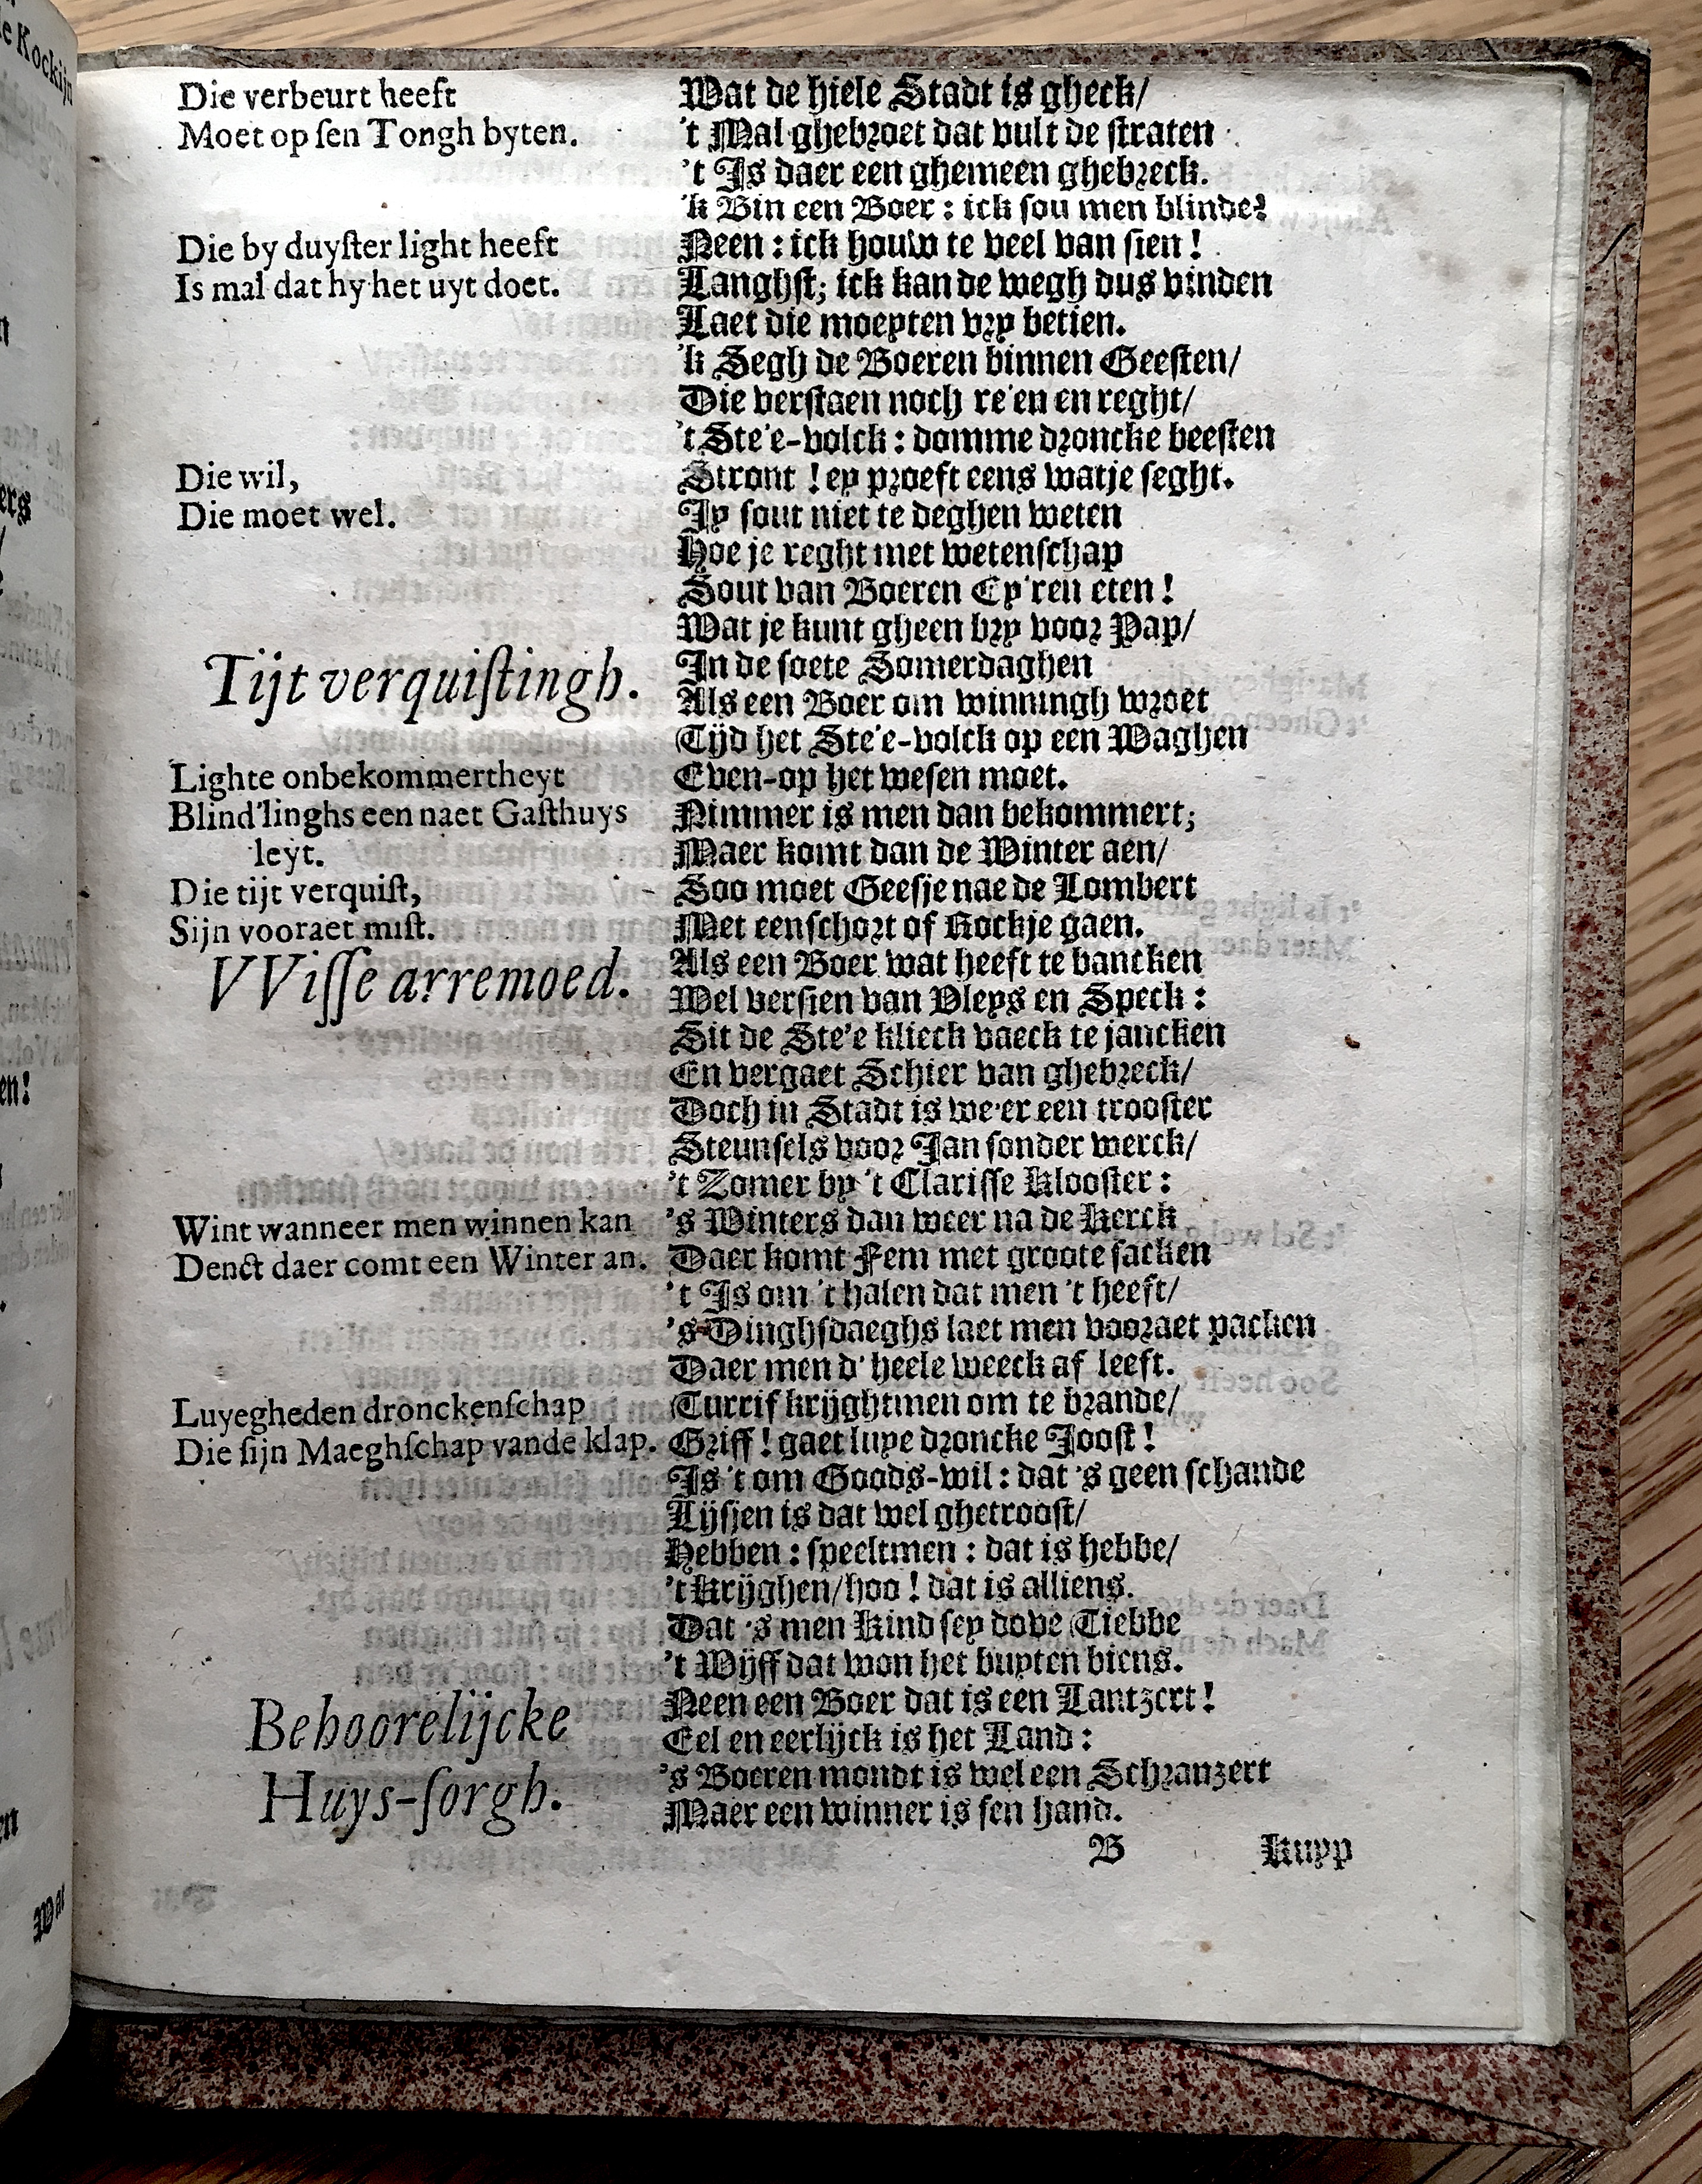 Die verbeurt heeft
Moet op ſen Tongh byten.
Die by duyſter light heeft
Is mal dat hy het uyt doet.
Die wil,
Die moet wel.
Tijt verquiſtingh.
Lighte onbekommertheyt
Blind'linghs een naet Gaſthuys
leyt.
Die tijt verquiſt,
Sijn vooraet miſt.
VViſſe arremoed.
Wint wanneer men winnen kan
Denct daer comt een Winter an.
Luyegheden dronckenſchap
Die ſijn Maeghſchap vande klap.
Behoorelijcke
Huys-ſorgh.
Wat de hiele Stadt is gheck/
't Mal ghebroet dat vult de ſtraten
't Is daer een ghemeen ghebreck.
'k Bin een Boer : ick ſou men blinde?
Neen : ick houw te veel van ſien !
Langhſt; ick kan de wegh dus vinden
Laet die moeyten vry betien.
'k Segh de Boeren binnen Geeſten/
Die verſtaen noch re'en en reght/
't Ste'e-volck : domme droncke beeſten
Stront ! ey proeft eens watje ſeght.
Jy ſout niet te deghen weten
Hoe je reght met wetenſchap
Sout van Boeren Ey'ren eten !
Wat je kunt gheen bry voor Pap/
In de ſoete Somerdaghen
Als een Boer om winningh wroet
Tijd het Ste'e-volck op een Waghen
Even-op het weſen moet.
Nimmer is men dan bekommert;
Maer komt dan de Winter aen/
Soo moet Geeſje nae de Lombert
Met een ſchort of Rockje gaen.
Als een Boer wat heeft te bancken
Wel verſien van Vleys en Speck :
Sit de Ste'e klieck vaeck te jancken
En vergaet Schier van ghebreck/
Doch in Stadt is we'er een trooſter
Steunſels voor Jan ſonder werck/
't Zomer by 't Clariſſe Klooſter :
's Winters dan weer na de Kerck
Daer komt Fem met groote ſacken
't Is om 't halen dat men 't heeft/
's Dinghſdaeghs laet men vooraet packen
Daer men d' heele weeck af leeft.
Turrif krijghtmen om te brande/
Griff ! gaet luye droncke Jooſt !
Is 't om Goods-wil : dat 's geen ſchande
Lijsjen is dat wel ghetrooſt/
Hebben : ſpeeltmen : dat is hebbe/
't Krijghen/hoo ! dat is alliens.
Dat 's men Kind ſey dove Tiebbe
't Wijff dat won het buyten biens.
Neen een Boer dat is een Lantzert !
Eel en eerlijck is het Land :
's Boeren mondt is wel een Schranzert
Maer een winner is ſen hand.
B Kupp